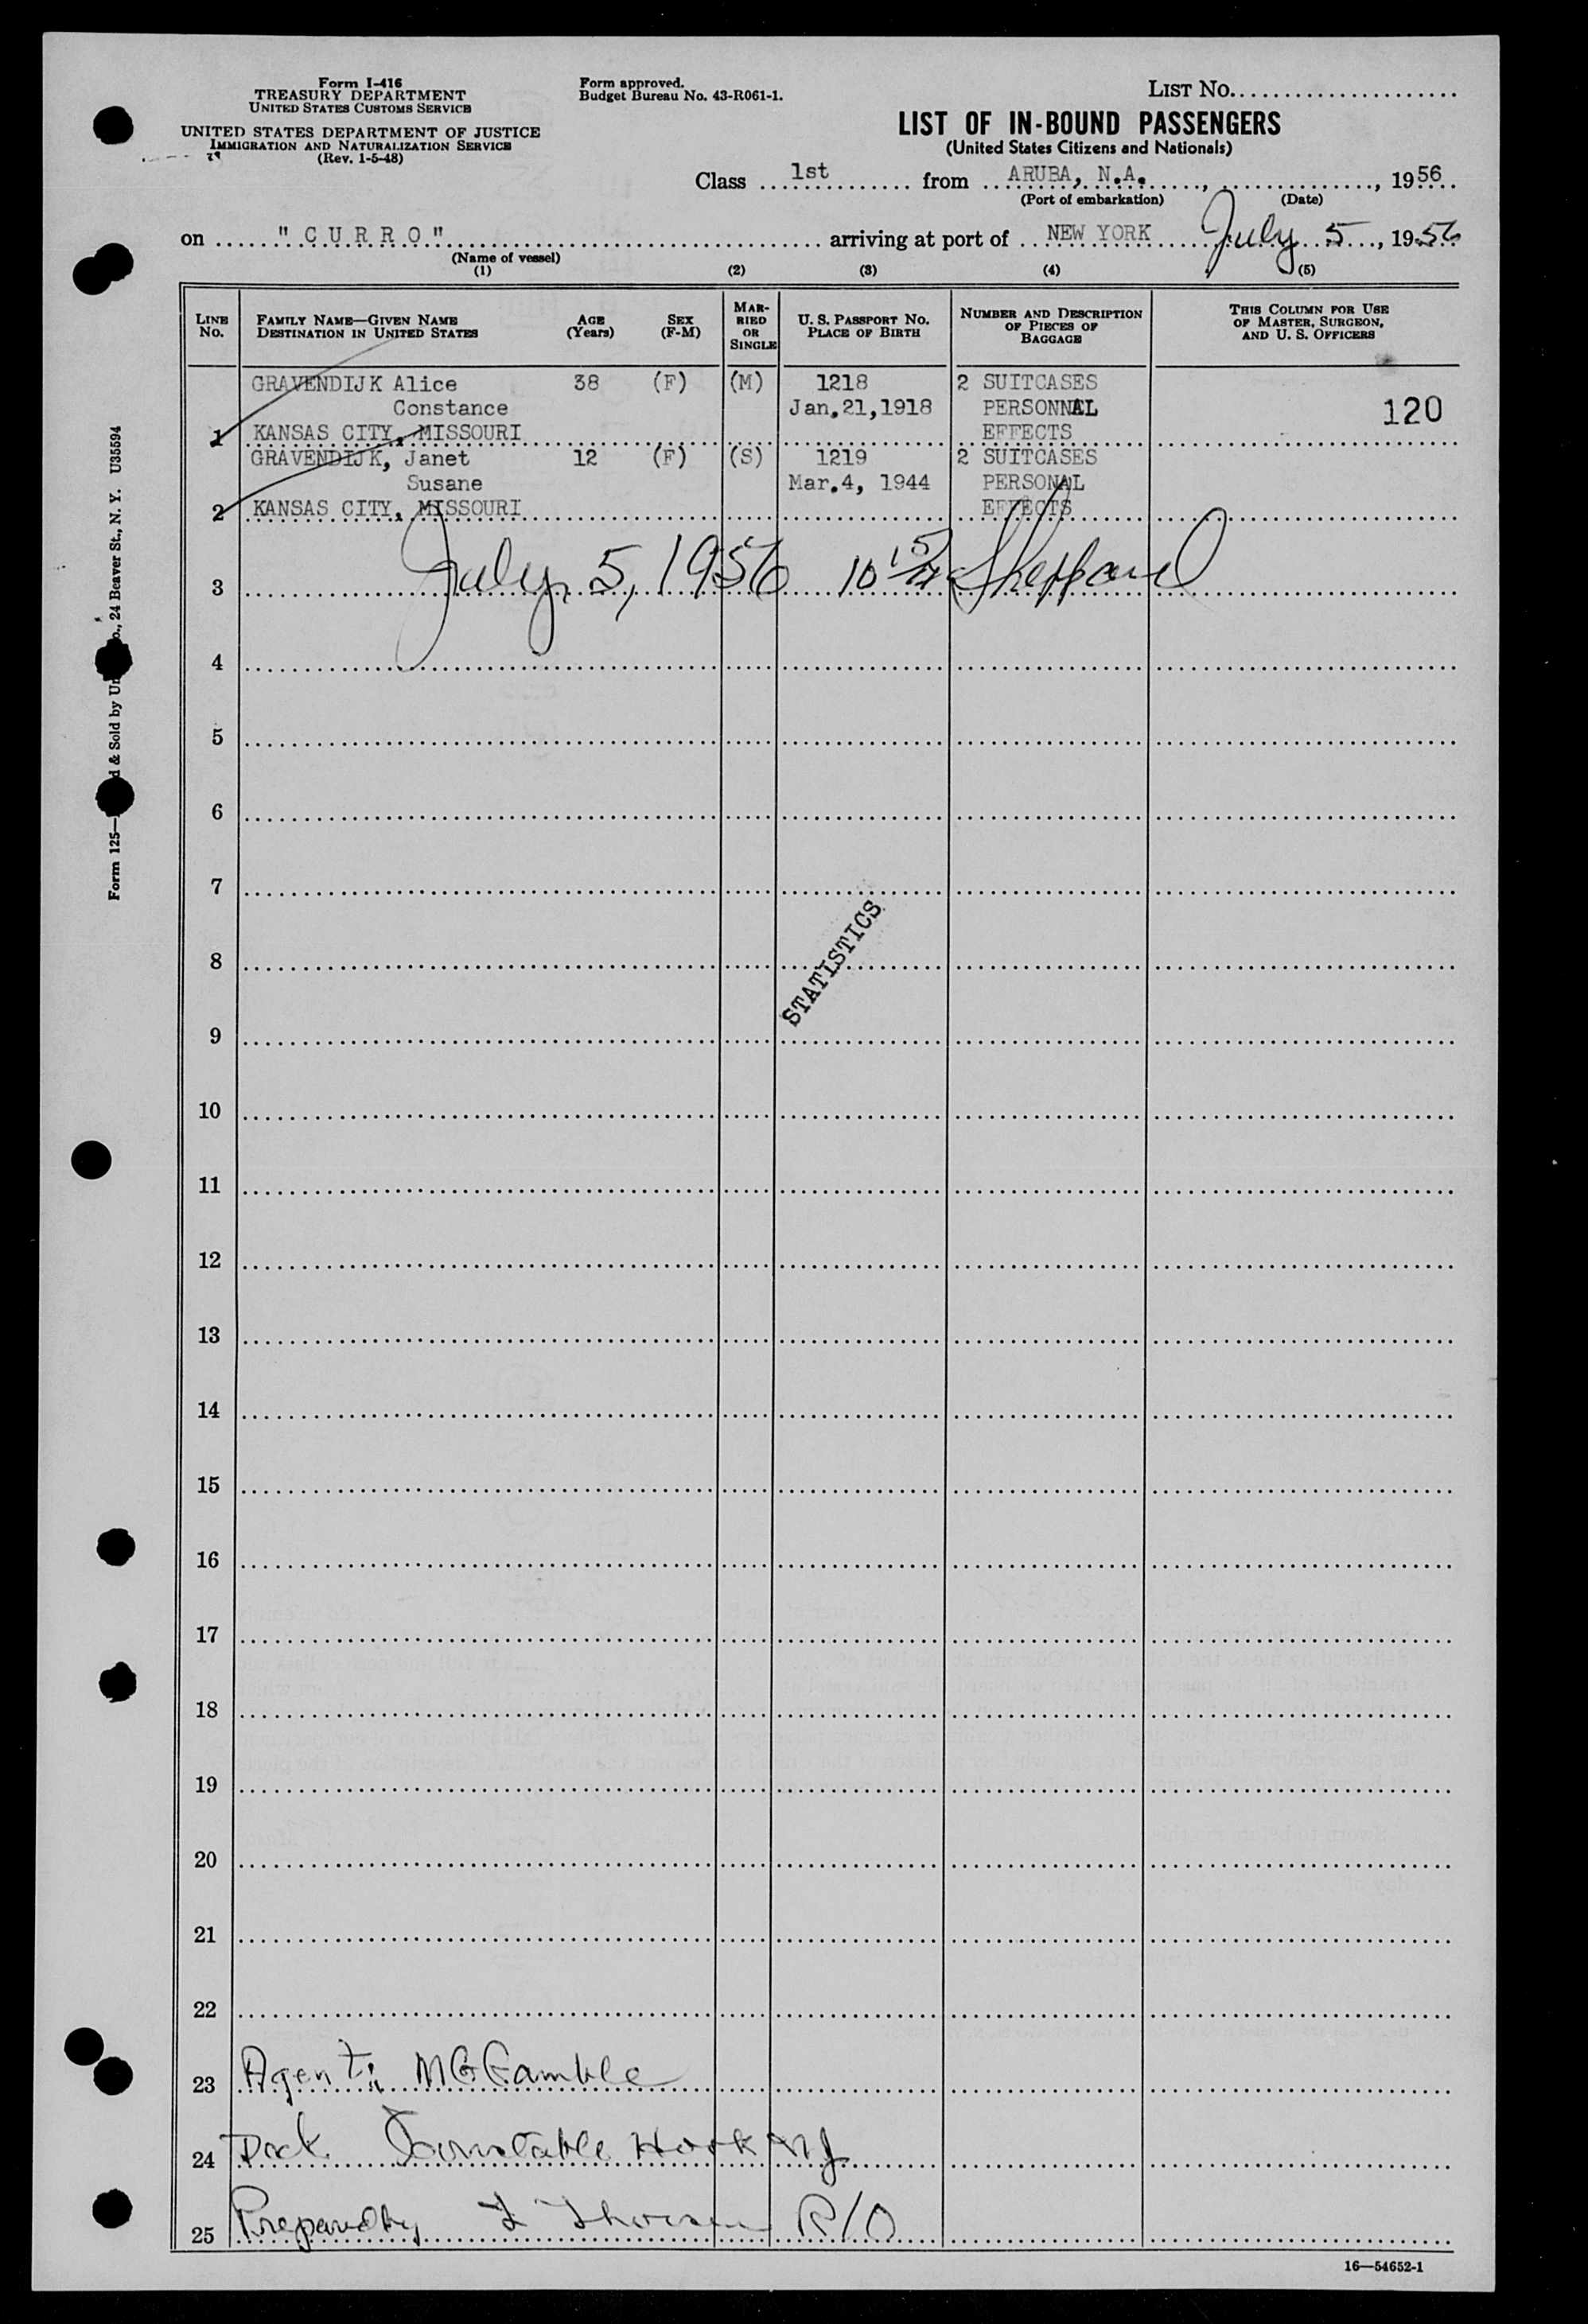 Form I-416
TREASURY DEPARTMENT
UNITED STATES CUSTOMS SERVICE
UNITED STATES DEPARTMENT OF JUSTICE
IMMIGRATION AND NATURALIZATION SERVICE
(Rev. 1-5-48)
Form approved.
Budget Bureau No. 43-R061-1.
LIST No.
LIST OF IN-BOUND PASSENGERS
(United States Citizens and Nationals)
Class 1st from ARUBA, N.A., , 1956
(Port of embarkation) (Date)
on "CURRO" arriving at port of NEW YORK July 5, 1956
(Name of vessel)
(1) (2) (3) (4) (5)
LINE No. FAMILY NAME—GIVEN NAME DESTINATION IN UNITED STATES AGE (Years) SEX (F-M) MARRIED OR SINGLE U. S. PASSPORT No. PLACE OF BIRTH NUMBER AND DESCRIPTION OF PIECES OF BAGGAGE THIS COLUMN FOR USE OF MASTER, SURGEON, AND U. S. OFFICERS
GRAVENDIJK Alice 38 (F) (M) 1218 2 SUITCASES
Constance Jan.21,1918 PERSONNAL 120
1 KANSAS CITY, MISSOURI EFFECTS
GRAVENDIJK, Janet 12 (F) (S) 1219 2 SUITCASES
Susane Mar.4, 1944 PERSONAL
2 KANSAS CITY, MISSOURI EFFECTS
3 July 5, 1956 Sheppard
4
5
6
7
8
STATISTICS
9
10
11
12
13
14
15
16
17
18
19
20
21
22
23 Agent: McGamble
24 Dock Constable Hook NJ
25 Prepared by R/O
16—54652-1
24 Beaver St., N. Y. U35594
& Sold by
Form 125—